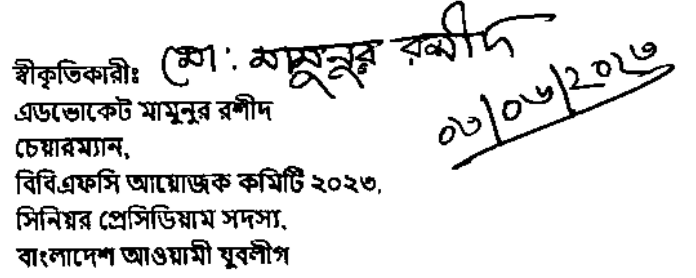 স্বীকৃতিকারীঃ মো: মামুনুর রশীদ
০৩/০৬/২০২৩
এডভোকেট মামুনুর রশীদ
চেয়ারম্যান,
বিবিএফসি আয়োজক কমিটি ২০২৩,
সিনিয়র প্রেসিডিয়াম সদস্য,
বাংলাদেশ আওয়ামী যুবলীগ